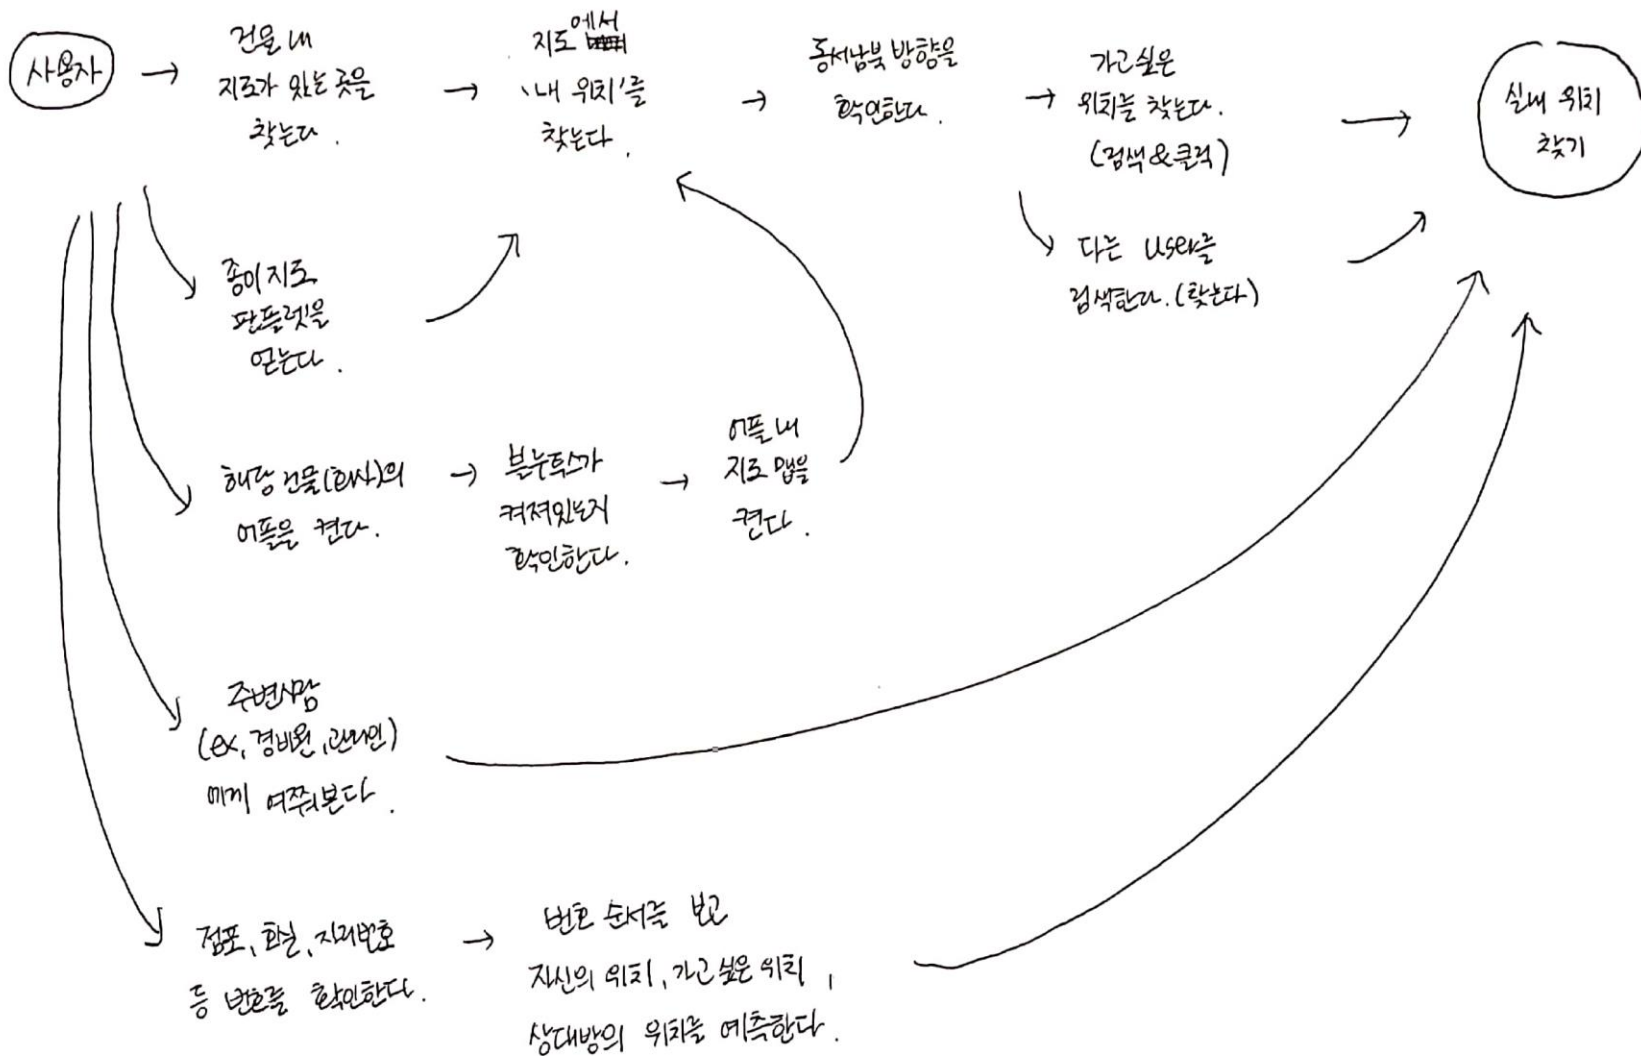 사용자
건물 내
지도가 있는 곳을
찾는다.
지도에서
'내 위치'를
찾는다.
동서남북 방향을
확인한다.
가고싶은
위치를 찾는다.
(검색&클릭)
실내 위치
찾기
다른 user를
검색한다.(찾는다)
종이지도
팜플렛을
얻는다.
해당 건물(회사)의
어플을 켠다.
블루투스가
켜져있는지
확인한다.
어플 내
지도 맵을
켠다.
주변사람
(ex, 경비원, 관리인)
에게 여쭤본다.
점포, 화실, 자리번호
등 번호를 확인한다.
번호 순서를 보고
자신의 위치, 가고 싶은 위치,
상대방의 위치를 예측한다.